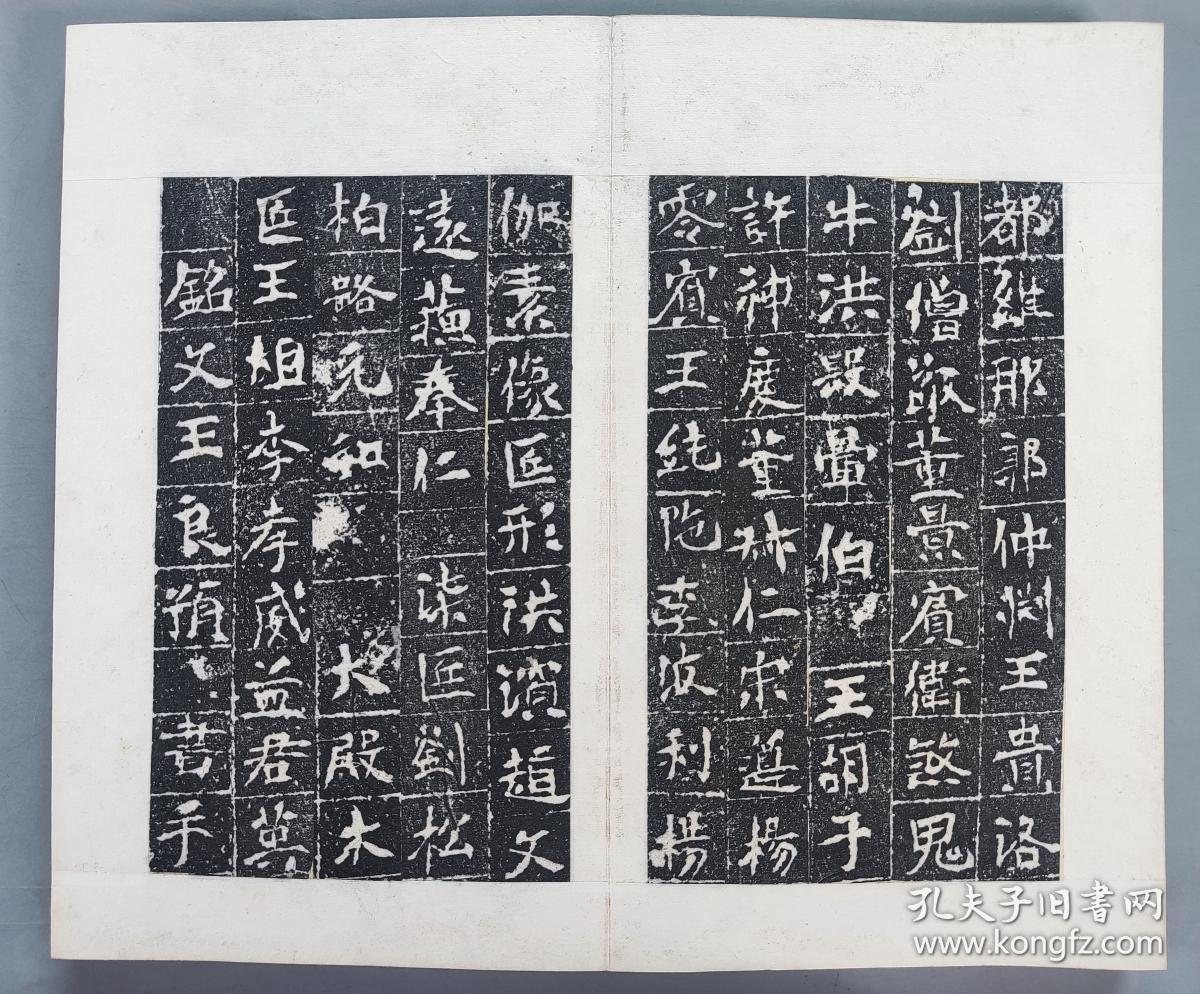 都維那郭仲渕王貴洛
劉僧敬董景賓衛煞鬼
牛洪敳暈伯王胡子
許神慶董妹仁宋遵楊
零賓王純陁李波利楊
伽素像匠形洪濱趙文
遠蕪奉仁柒匠劉松
柏路元和大殿木
匠王俎李孝威益君英
銘文王良預書手
孔夫子旧書网
www.kongfz.com